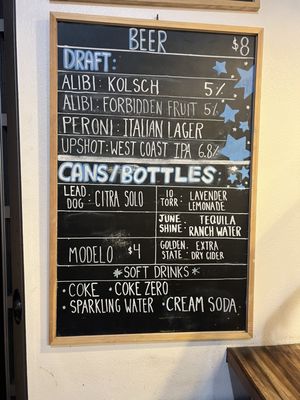 BEER $8
DRAFT:
ALIBI: KOLSCH 5%
ALIBI: FORBIDDEN FRUIT 5%
PERONI: ITALIAN LAGER
UPSHOT: WEST COAST IPA 6.8%
CANS/BOTTLES:
LEAD DOG: CITRA SOLO
10 TORR: LAVENDER LEMONADE
JUNE SHINE: TEQUILA RANCH WATER
MODELO $4
GOLDEN STATE: EXTRA DRY CIDER
*SOFT DRINKS*
• COKE • COKE ZERO
• SPARKLING WATER • CREAM SODA